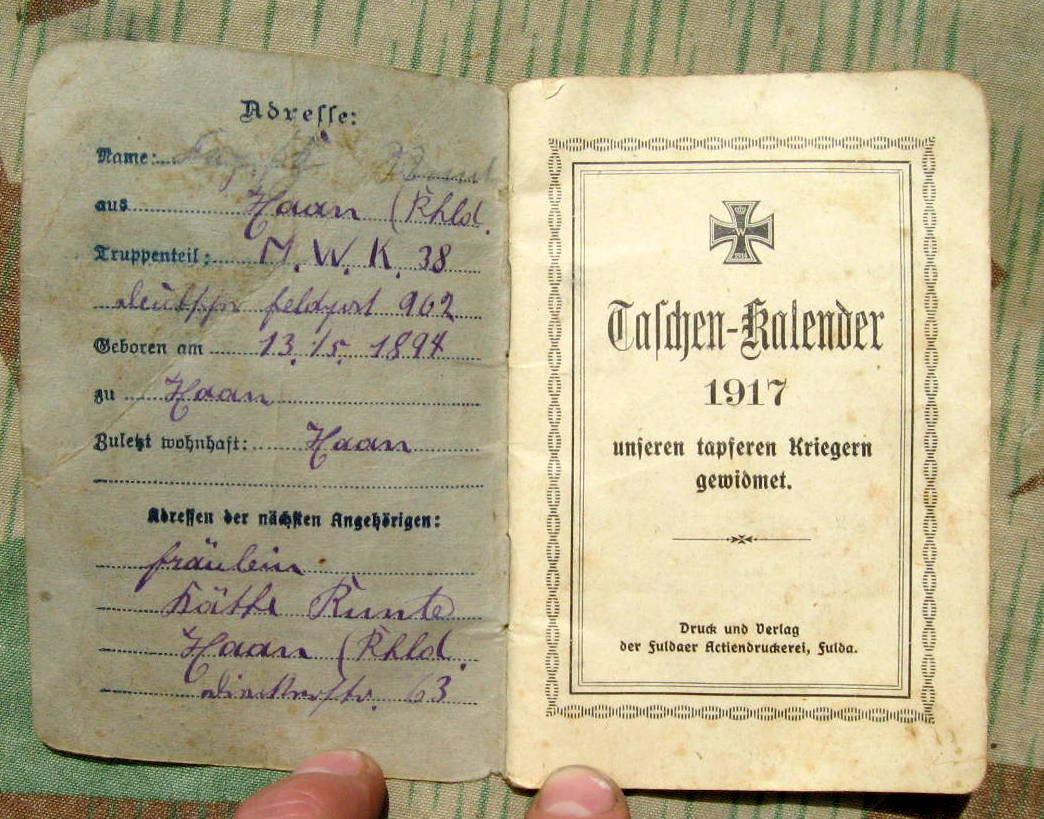 Adresse:
Name:
aus Haan (Rhld.
Truppenteil: M. W. K. 38
feldpost 962
Geboren am 13./5. 1894
zu Haan
Zuletzt wohnhaft: Haan
Adressen der nächsten Angehörigen:
fräulein
Käthe Runte
Haan (Rhld.
63
W
1914
Taschen-Kalender
1917
unseren tapferen Kriegern
gewidmet.
Druck und Verlag
der Fuldaer Actiendruckerei, Fulda.